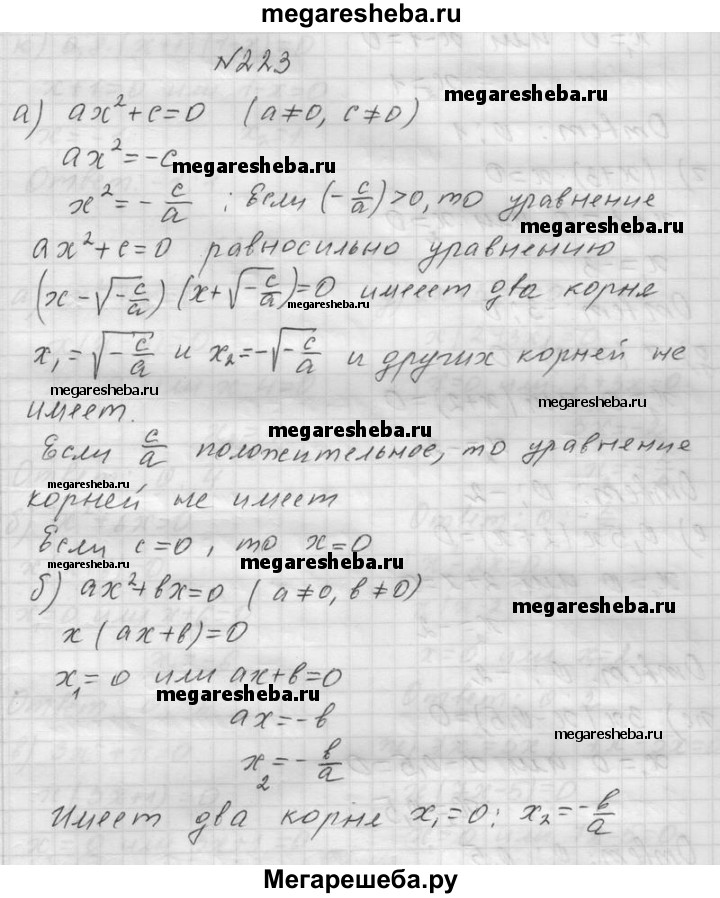 megaresheba.ru
№223
а) ax²+c=0 (a≠0, c≠0)
megaresheba.ru
ax²=-c
megaresheba.ru
x²=-c/a ; Если (-c/a)>0, то уравнение
megaresheba.ru
ax²+c=0 равносильно уравнению
(x-√(-c/a)) (x+√(-c/a))=0 имеет два корня
megaresheba.ru
x₁=√(-c/a) и x₂=-√(-c/a) и других корней не
megaresheba.ru
megaresheba.ru
имеет.
megaresheba.ru
Если c/a положительное, то уравнение
megaresheba.ru
корней не имеет
Если c=0, то x=0
megaresheba.ru
б) ax²+bx=0 (a≠0, b≠0)
megaresheba.ru
x(ax+b)=0
x₁=0 или ax+b=0
megaresheba.ru
ax=-b
megaresheba.ru
x₂=-b/a
Имеет два корня x₁=0; x₂=-b/a
Мегарешеба.ру